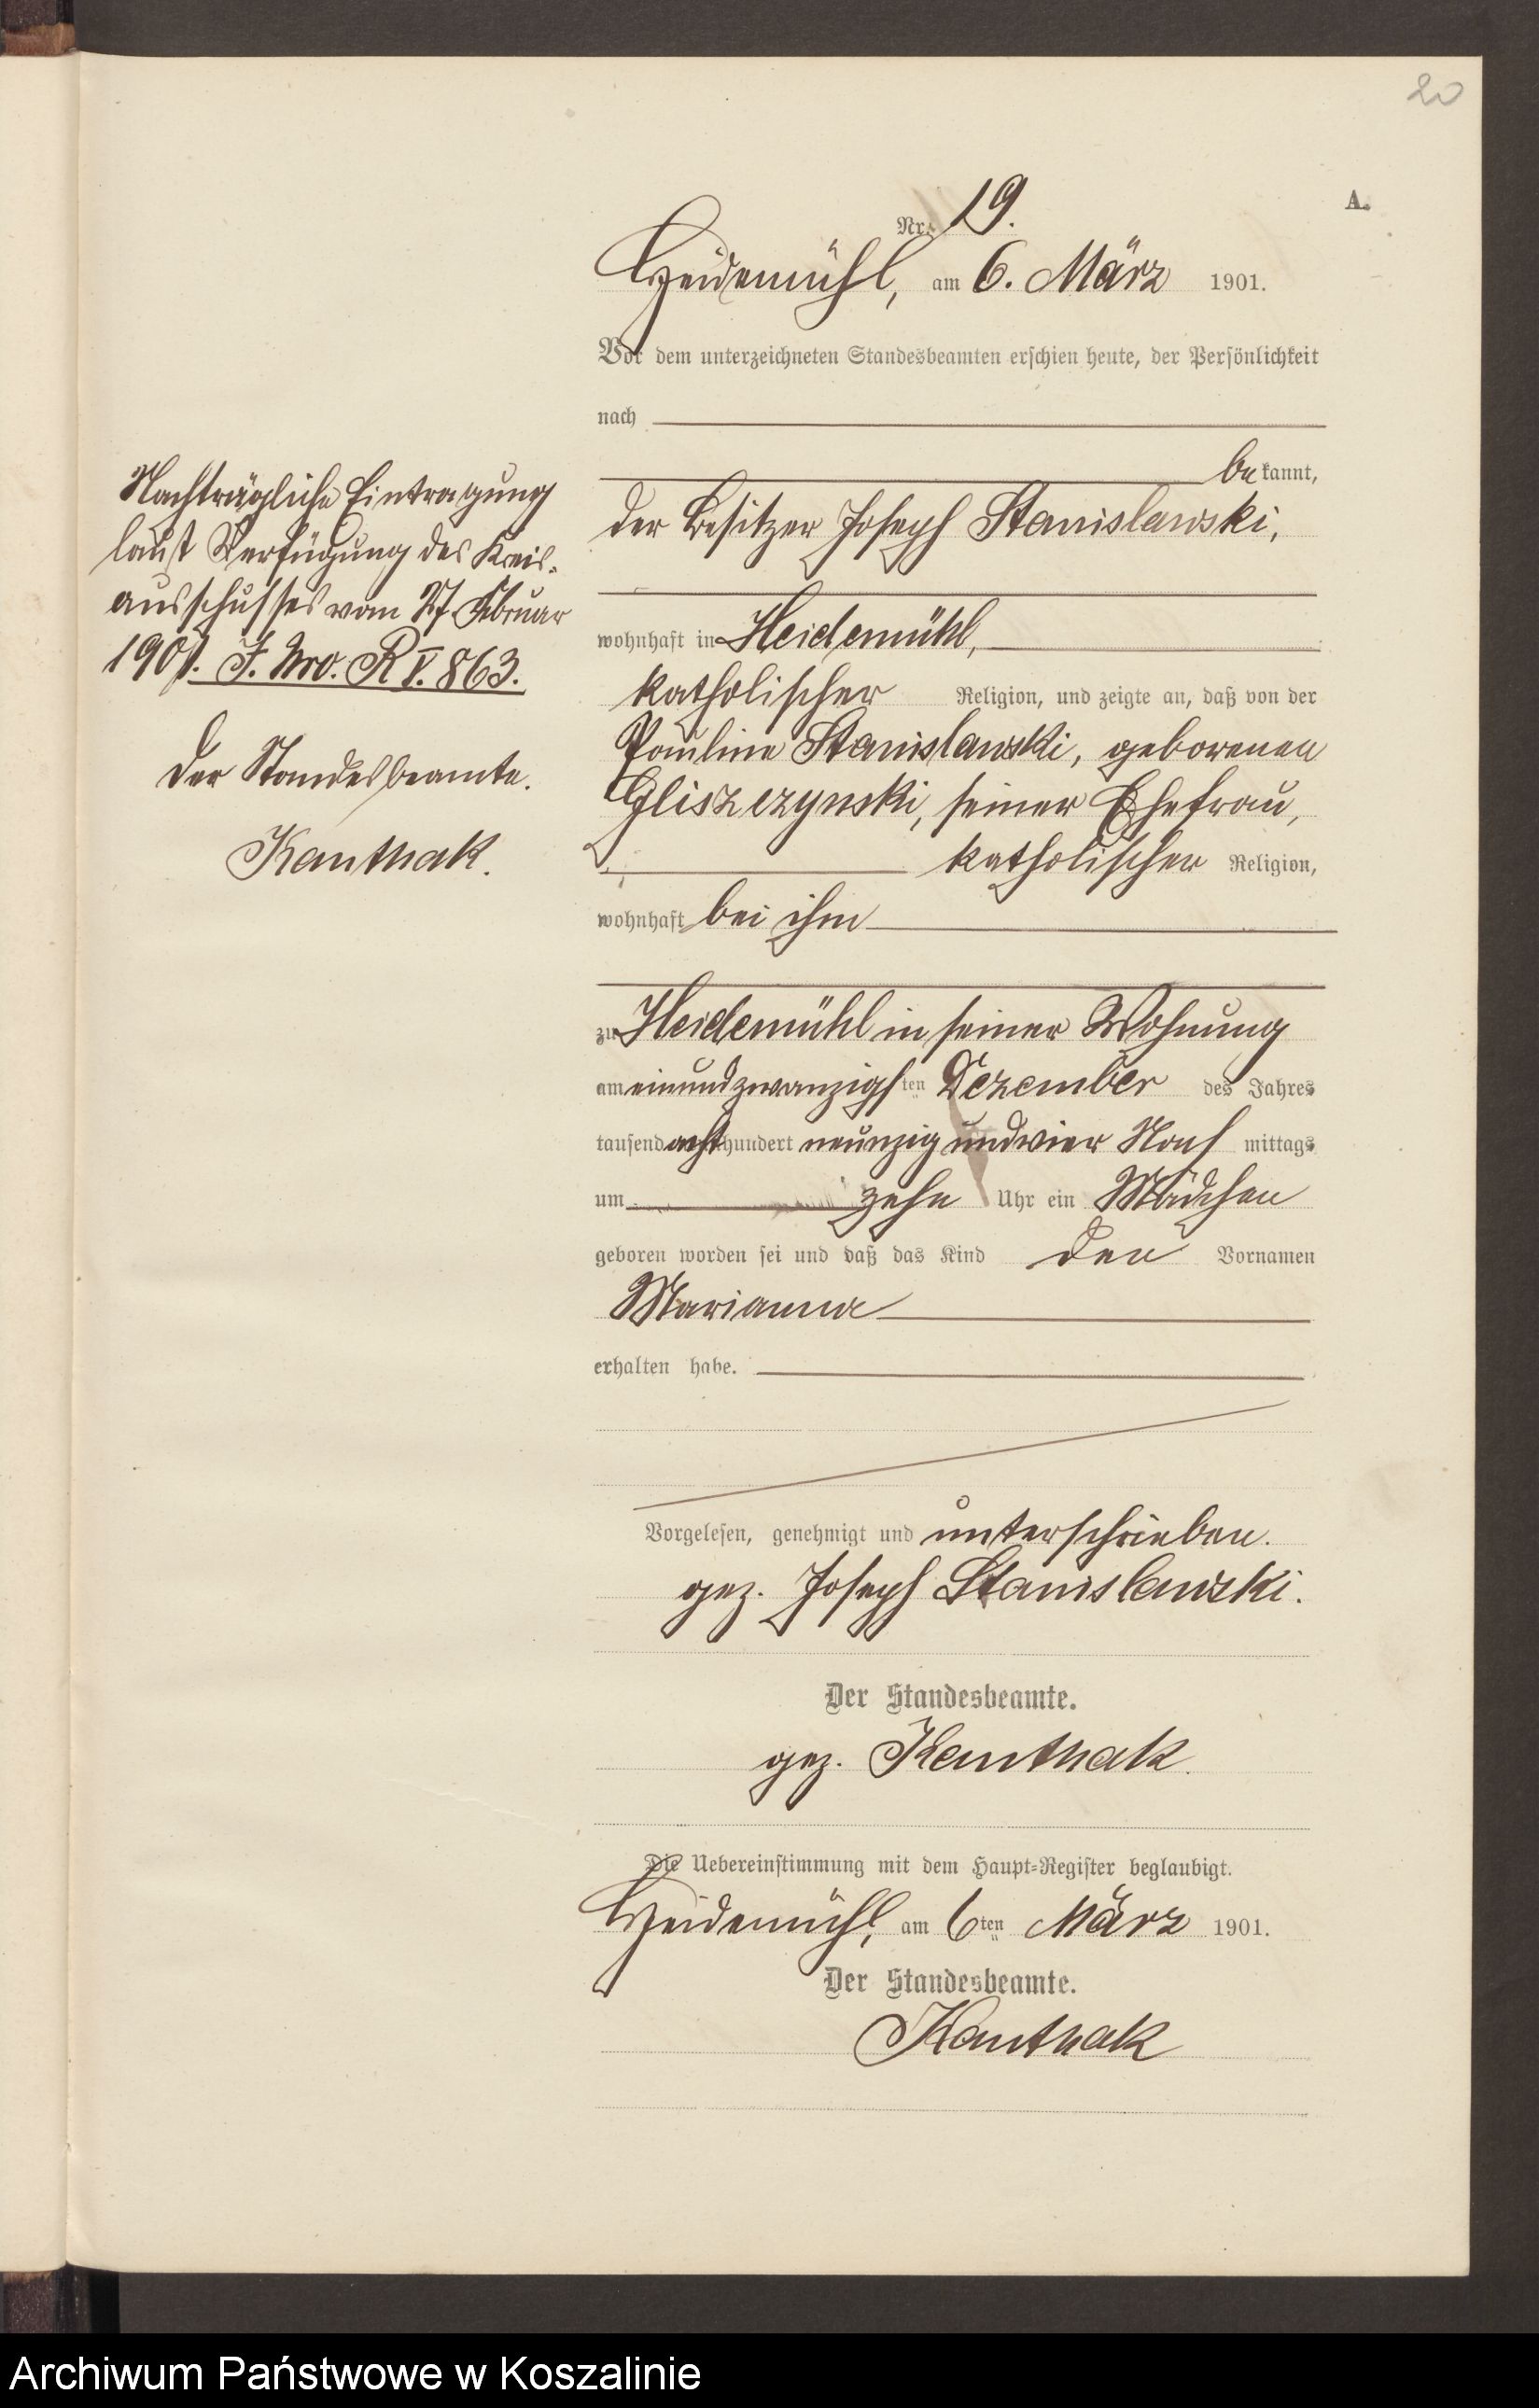 20
A.
Nr. 19.
Heidemühl, am 6. März 1901.
Vor dem unterzeichneten Standesbeamten erschien heute, der Persönlichkeit
nach
bekannt,
der Besitzer Joseph Stanislawski,
wohnhaft in Heidemühl,
katholischer Religion, und zeigte an, daß von der
Pauline Stanislawski, geborenen
Gliszczynski, seiner Ehefrau,
katholischer Religion,
wohnhaft bei ihm
zu Heidemühl in seiner Wohnung
am einundzwanzigsten Dezember des Jahres
tausend achthundert neunzig und vier Nachmittags
um zehn Uhr ein Mädchen
geboren worden sei und daß das Kind den Vornamen
Marianna
erhalten habe.
Vorgelesen, genehmigt und unterschrieben.
gez. Joseph Stanislawski.
Der Standesbeamte.
gez. Kanthak.
Die Uebereinstimmung mit dem Haupt-Register beglaubigt.
Heidemühl, am 6ten März 1901.
Der Standesbeamte.
Kanthak
Nachträgliche Eintragung
laut Verfügung des Kreis-
ausschusses vom 27. Februar
1901. J. Nro. R V. 863.
Der Standesbeamte.
Kanthak.
Archiwum Państwowe w Koszalinie